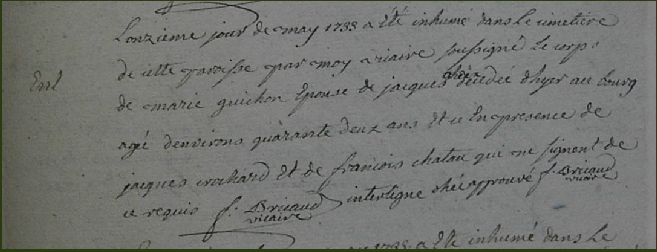 Lonzieme jour de may 1788 a Eté inhumé dans le cimetiere
Ent de cette paroisse par moy vicaire sussigné le corps
de marie guichon Epouse de jacques chée décédée d'hyer au bourg
agé denvirons quarante deux ans Et ce En presence de
jacques crochard et de francois chatau qui ne signent de
ce requis f. Bricaud vicaire interligne chée approuvé f. Bricaud vicaire
1788 a Eté inhumé dans le